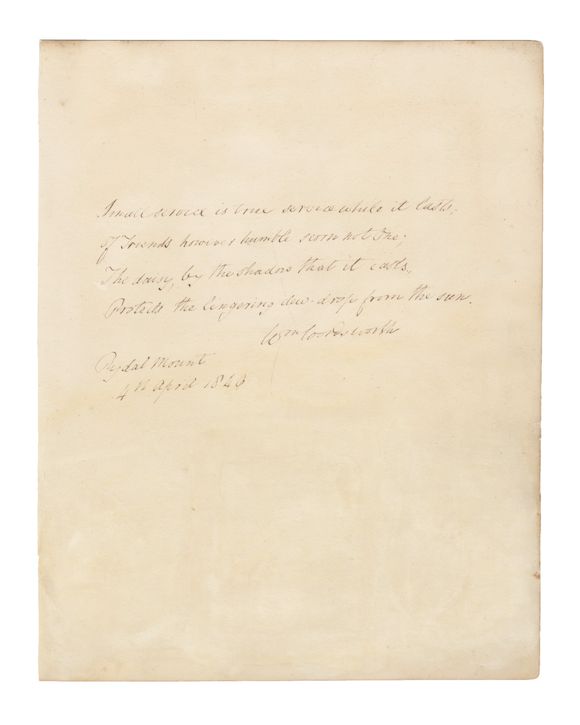 Small service is true service while it lasts;
Of Friends however humble scorn not One;
The daisy, by the shadow that it casts,
Protects the lingering dew-drop from the sun.
Wm Wordsworth
Rydal Mount
4th April 1843